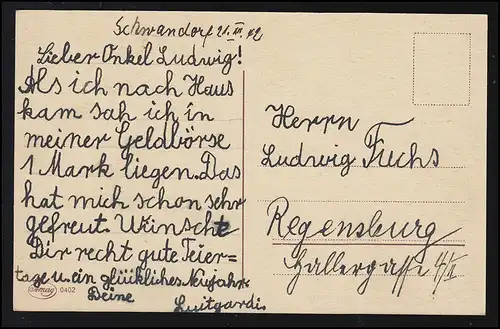 Schwandorf 21. III. 42
Lieber Onkel Ludwig!
Als ich nach Haus
kam sah ich in
meiner Geldbörse
1 Mark liegen. Das
hat mich schon sehr
gefreut. Wünsche
Dir recht gute Feier-
tage u. ein glückliches Neujahr.
Deine Luitgardis
Amag 0402
Herrn
Ludwig Fuchs
Regensburg
Hallergasse 4/II